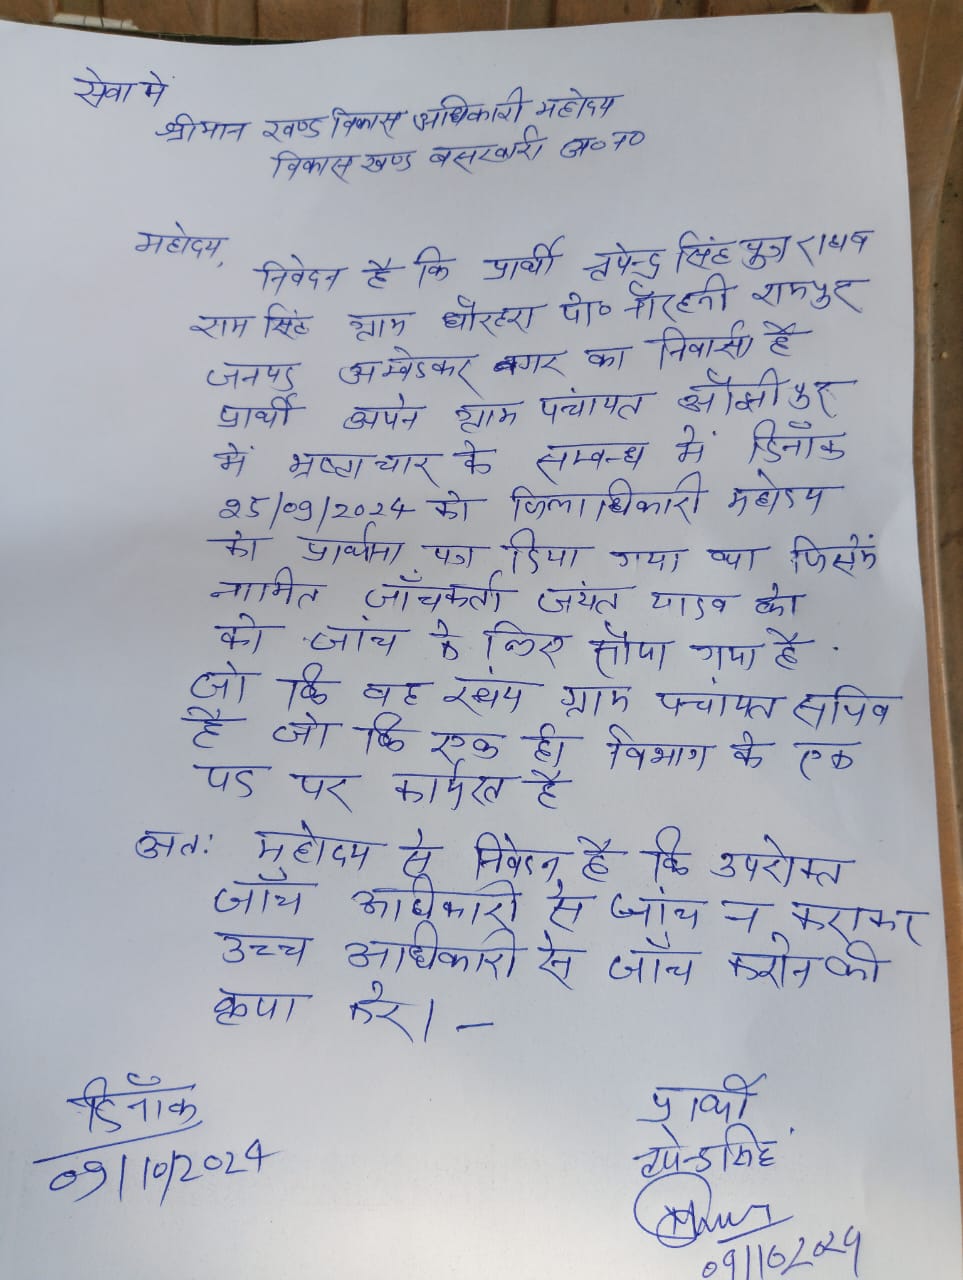 सेवा में
श्रीमान खण्ड विकास अधिकारी महोदय
विकास खण्ड बसखारी अ०न०
महोदय,
निवेदन है कि प्रार्थी नृपेन्द्र सिंह पुत्र राघव
राम सिंह ग्राम धौरहरा पो० नौरहनी रामपुर
जनपद अम्बेडकर नगर का निवासी है
प्रार्थी अपने ग्राम पंचायत
में भ्रष्टाचार के सम्बन्ध में दिनाँक
25/09/2024 को जिलाधिकारी महोदय
को प्रार्थना पत्र दिया गया था जिसमें
नामित जाँचकर्ता जयंत यादव
को जांच के लिए सौपा गया है
जो कि वह स्वंय ग्राम पंचायत सचिव
है जो कि एक ही विभाग के एक
पद पर कार्यरत है
अतः महोदय से निवेदन है कि उपरोक्त
जाँच अधिकारी से जांच न कराकर
उच्च अधिकारी से जाँच कराने की
कृपा करे। –
दिनाँक
09/10/2024
प्रार्थी
नृपेन्द्र सिंह
09/10/2024